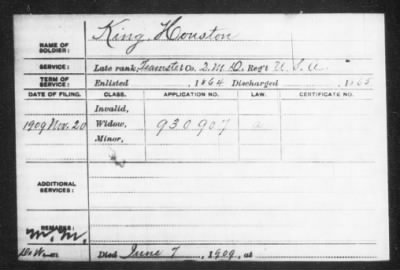 King, Houston
NAME OF SOLDIER:
SERVICE: Late rank, Teamster Co. Q.M.D. Reg't U.S.A.
TERM OF SERVICE: Enlisted , 1864 Discharged , 1865
DATE OF FILING. CLASS. APPLICATION NO. LAW. CERTIFICATE NO.
Invalid,
1909 Nov. 20 Widow, 930907
Minor,
ADDITIONAL SERVICES:
REMARKS:
Died June 7, 1909, at